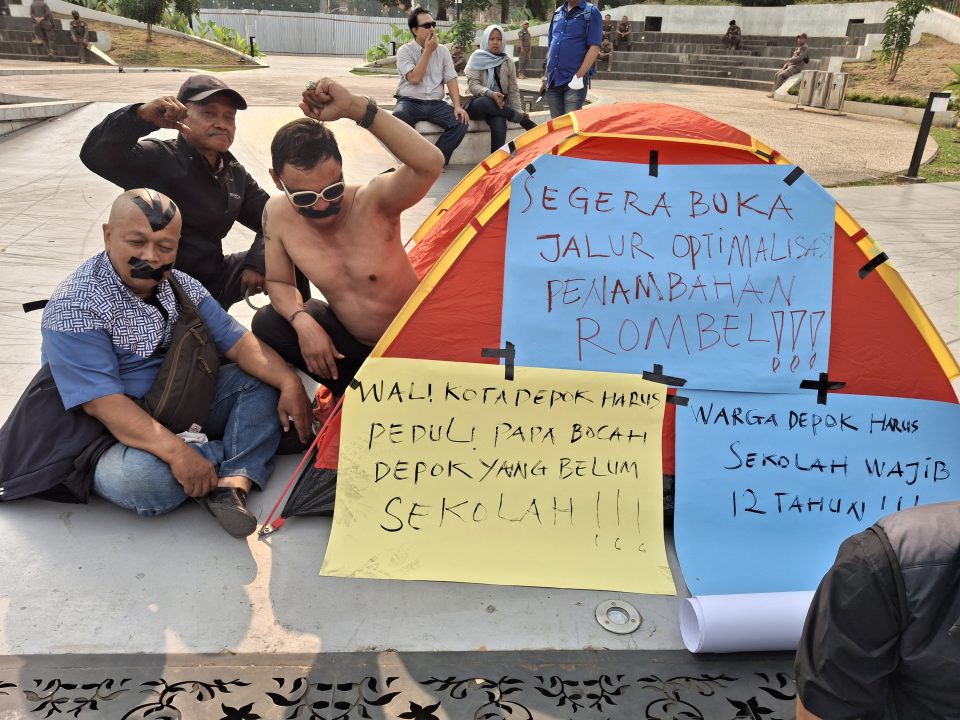 SEGERA BUKA
JALUR OPTIMALISASI
PENAMBAHAN
ROMBEL!!!
WALI KOTA DEPOK HARUS
PEDULI PAPA BOCAH
DEPOK YANG BELUM
SEKOLAH!!!
WARGA DEPOK HARUS
SEKOLAH WAJIB
12 TAHUN!!!